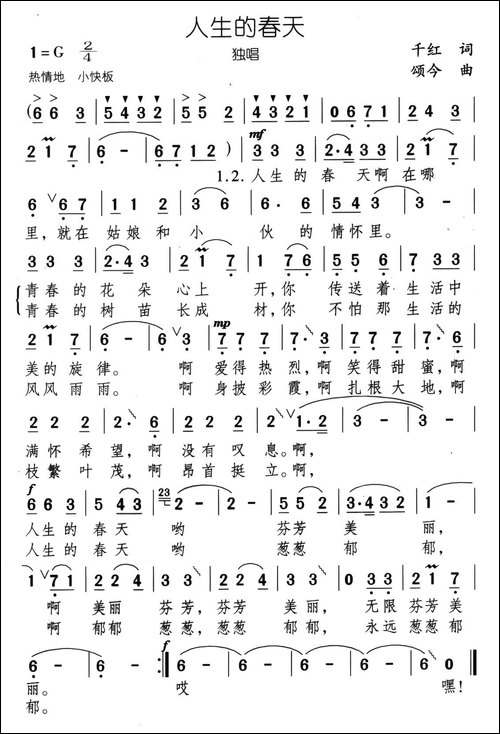 人生的春天
1=G 2/4
独唱
千红 词
颂今 曲
热情地 小快板
(6 6 3 | 5 4 3 2 | 5 5 2 | 4 3 2 1 | 0 6 7 1 | 2 3 4
mf
2 1 7 | 6 - | 6 7 1 2 ) | 3 3 3 | 2·4 3 3 | 2 1 7
1.2.人生的 春 天啊 在哪
6 ∨ 6 7 | 1 3 3 | 2 3 | 6· 6 | 5·4 3 | 3 -
里,就在 姑娘 和 小 伙 的 情怀里。
3 3 3 | 2·4 3 | 2 1 7 | 1 7 6 | 2 3 5 | 6 5 3
青春 的 花 朵 心上 开,你 传送 着 生活中
青春 的 树 苗 长成 材,你 不怕 那 生活的
mp
2 1 7 | 6 - | 6 - ∨ | 7 7 7 7 | 7 7·5 | 7 7 7 7 | 7·6
美的 旋 律。 啊 爱得 热 烈,啊 笑得 甜 蜜,啊
风风 雨 雨。 啊 身披 彩 霞,啊 扎根 大 地,啊
满怀 希 望,啊 没有 叹 息。啊,
枝繁 叶 茂,啊 昂首 挺 立。啊,
f
6 6 3 | 5 4 3 | 2 - | 2 - | 5 5 2 | 3·4 3 2 | 2 2
人生 的 春天 哟 芬芳 美 丽,
人生 的 春天 哟 葱葱 郁 郁,
啊 美丽 芬芳,芬芳 美丽, 无限 芬芳 美
啊 郁郁 葱葱,葱葱 郁郁, 永远 葱葱 郁
f
6 - | 6 - :| 6 - | 6 - | 6 - | 6 - | 6 0 ‖
丽。 哎 嘿!
郁。